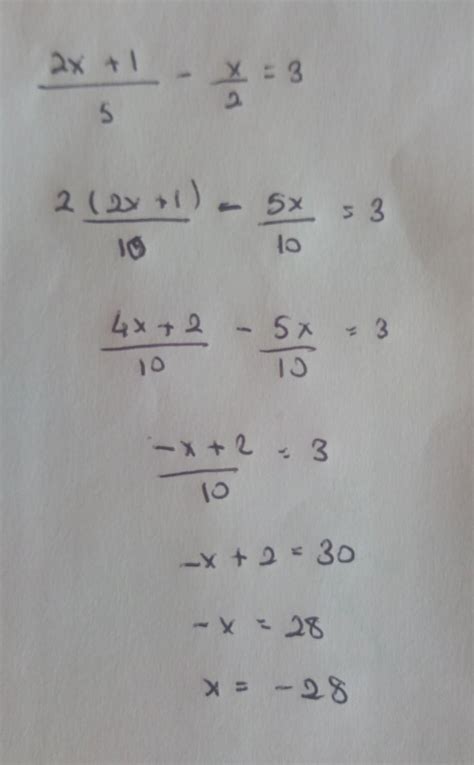 (2x + 1)/5 - x/2 = 3
2(2x + 1)/10 - 5x/10 = 3
(4x + 2)/10 - 5x/10 = 3
(-x + 2)/10 = 3
-x + 2 = 30
-x = 28
x = -28